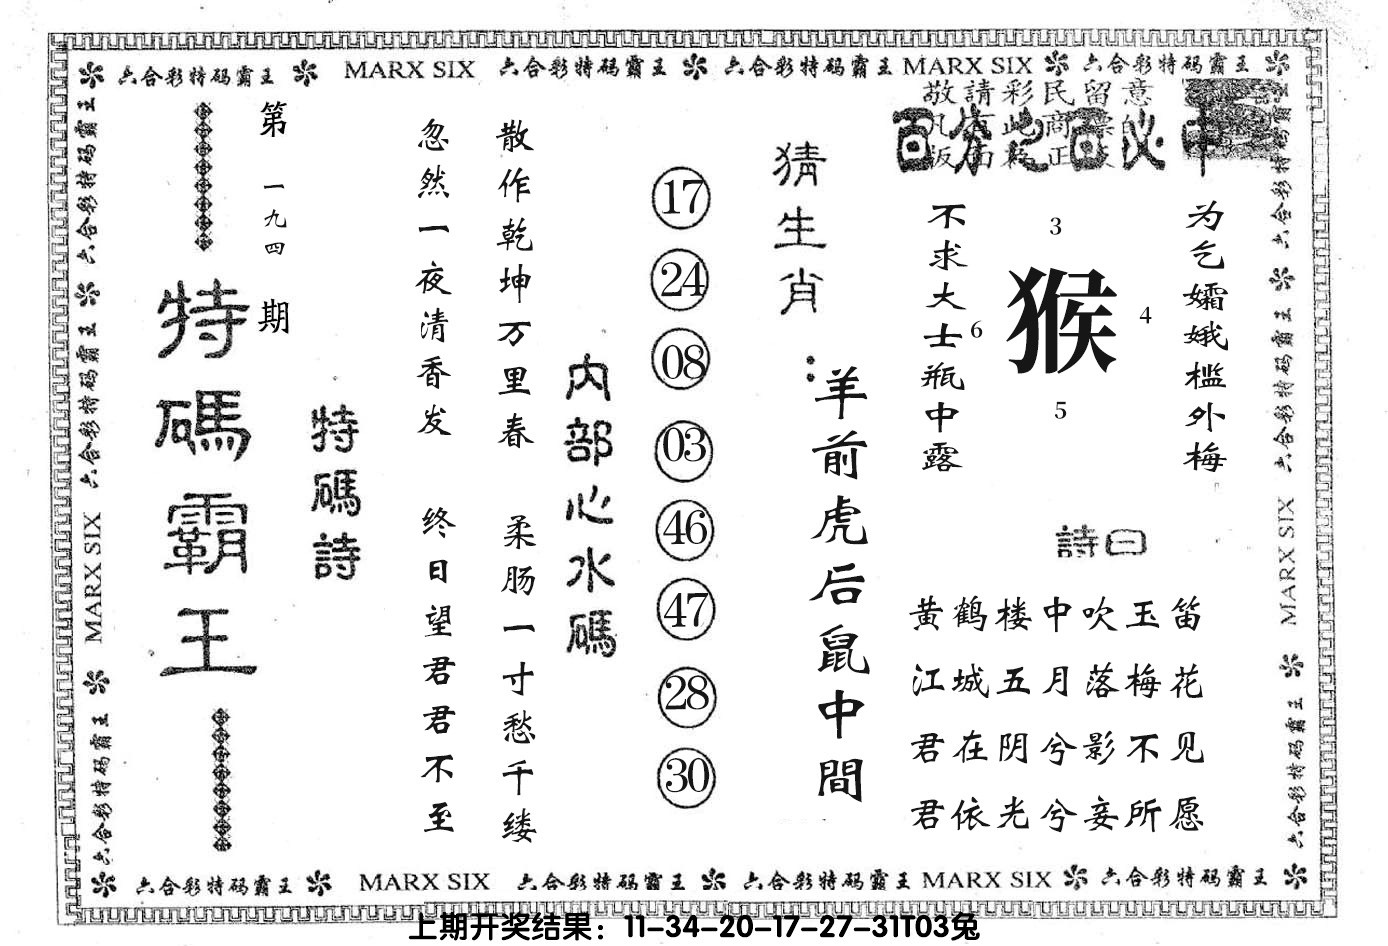 六合彩特码霸王 MARX SIX 六合彩特码霸王 六合彩特码霸王 MARX SIX 六合彩特码霸王
敬請彩民留意
百分之百必中
为乞孀娥槛外梅
不求大士瓶中露
3
猴
6
4
5
詩曰
黄鹤楼中吹玉笛
江城五月落梅花
君在阴兮影不见
君依光兮妾所愿
猜生肖:
羊前虎后鼠中間
17
24
08
03
46
47
28
30
内部心水碼
散作乾坤万里春 柔肠一寸愁千缕
忽然一夜清香发 终日望君君不至
特碼詩
第一九四期
特碼霸王
六合彩特码霸王 六合彩特码霸王 MARX SIX 六合彩特码霸王
六合彩特码霸王 六合彩特码霸王 MARX SIX 六合彩特码霸王
六合彩特码霸王 MARX SIX 六合彩特码霸王 六合彩特码霸王 MARX SIX 六合彩特码霸王
上期开奖结果：11-34-20-17-27-31T03兔